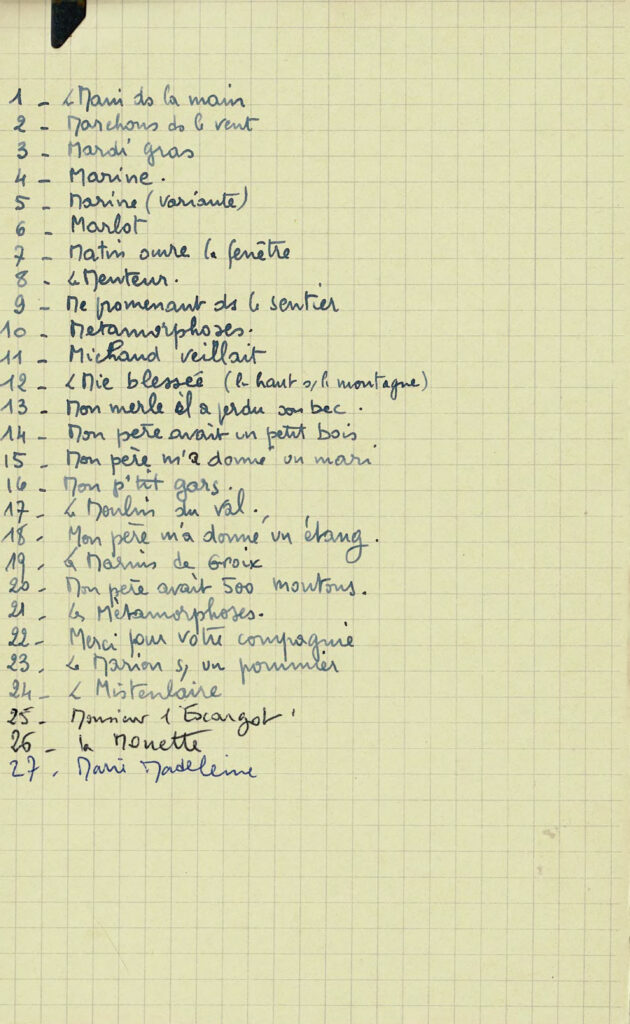 1 - La Main ds la main
2 - Marchons ds le vent
3 - Mardi gras
4 - Marine.
5 - Marine (variante)
6 - Marlot
7 - Matin ouvre la fenêtre
8 - Le Menteur.
9 - Me promenant ds le sentier
10 - Metamorphoses.
11 - Michaud veillait
12 - La Mie blessée (là haut s/ la montagne)
13 - Mon merle il a perdu son bec.
14 - Mon père avait un petit bois
15 - Mon père m'a donné un mari
16 - Mon p'tit gars.
17 - Le Moulin du Val.
18 - Mon père m'a donné un étang.
19 - Les Marins de Groix
20 - Mon père avait 500 moutons.
21 - Les Métamorphoses.
22 - Merci pour votre compagnie
23 - La Marion s/ un pommier
24 - La Mistenlaire
25 - Monsieur l'Escargot
26 - la Mouette
27 - Marie Madeleine